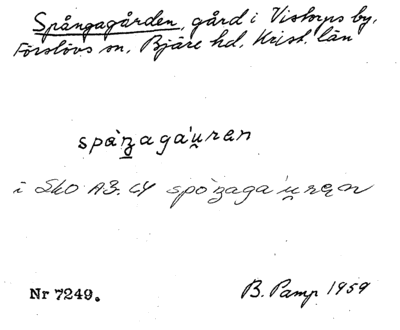 Spångagården, gård i Vistorps by,
Förslövs sn, Bjäre hd, Krist. län
spàŋagáu̯ren
i SkO A3. C4 spòŋagáu̯ren
Nr 7249. B. Pamp 1959